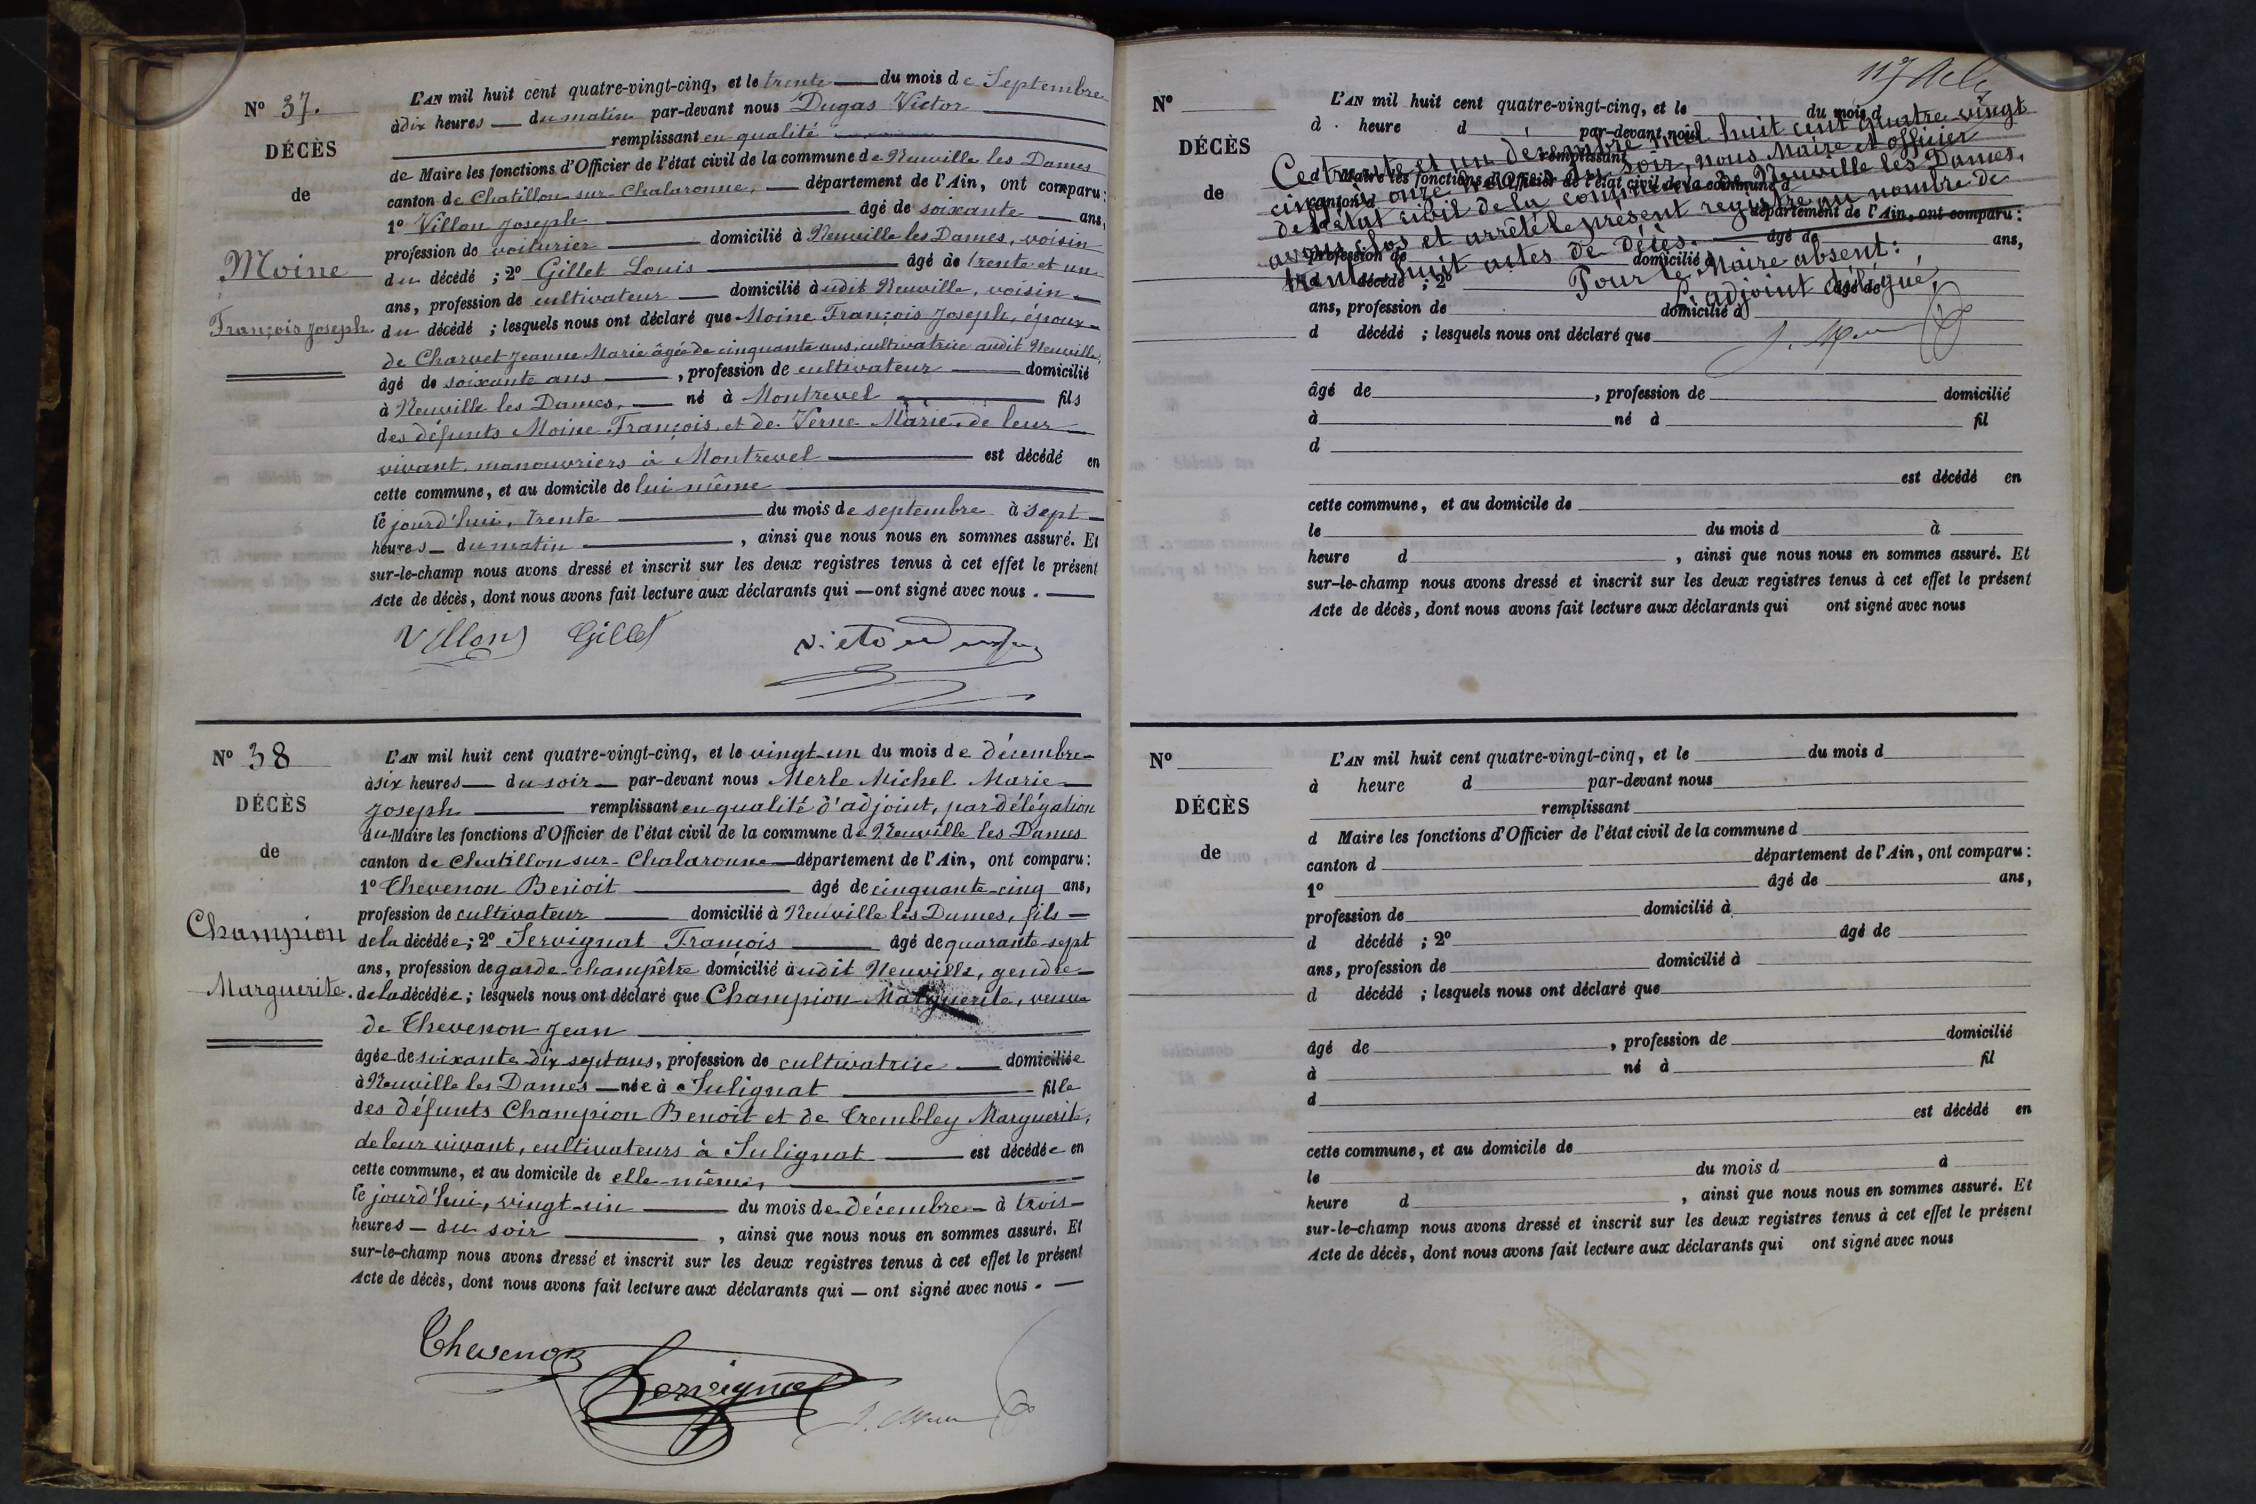 N° 37.
DÉCÈS
de
Moine
François Joseph
L'AN mil huit cent quatre-vingt-cinq, et le trente du mois de Septembre
à dix heures du matin par-devant nous Dugas Victor
remplissant en qualité
de Maire les fonctions d'Officier de l'état civil de la commune de Neuville les Dames
canton de Chatillon sur Chalaronne, département de l'Ain, ont comparu:
1° Villon Joseph âgé de soixante ans,
profession de voiturier domicilié à Neuville les Dames, voisin
du décédé ; 2° Gillet Louis âgé de trente et un
ans, profession de cultivateur domicilié audit Neuville, voisin
du décédé ; lesquels nous ont déclaré que Moine François Joseph, époux
de Charvet Jeanne Marie âgée de cinquante ans, cultivatrice audit Neuville,
âgé de soixante ans, profession de cultivateur domicilié
à Neuville les Dames, né à Montrevel fils
des défunts Moine François et de Verne Marie, de leur
vivant, manouvriers à Montrevel est décédé en
cette commune, et au domicile de lui même
le jourd'hui, trente du mois de septembre à sept
heures du matin, ainsi que nous nous en sommes assuré. Et
sur-le-champ nous avons dressé et inscrit sur les deux registres tenus à cet effet le présent
Acte de décès, dont nous avons fait lecture aux déclarants qui ont signé avec nous.
Villon Gillet
N° 38
DÉCÈS
de
Champion
Marguerite.
L'AN mil huit cent quatre-vingt-cinq, et le vingt-un du mois de décembre
à six heures du soir par-devant nous Merle Michel Marie
Joseph remplissant en qualité d'adjoint, par délégation
du Maire les fonctions d'Officier de l'état civil de la commune de Neuville les Dames
canton de Chatillon sur-Chalaronne département de l'Ain, ont comparu:
1° Thevenon Benoit âgé de cinquante-cinq ans,
profession de cultivateur domicilié à Neuville les Dames, fils
de la décédée; 2° Servignat François âgé de quarante-sept
ans, profession de garde-champêtre domicilié audit Neuville, gendre
de la décédée; lesquels nous ont déclaré que Champion Marguerite, veuve
de Thevenon Jean
âgée de soixante dix sept ans, profession de cultivatrice domiciliée
à Neuville les Dames née à Sulignat fille
des défunts Champion Benoit et de Trembley Marguerite,
de leur vivant, cultivateurs à Sulignat est décédée en
cette commune, et au domicile de elle-même,
le jourd'hui, vingt-un du mois de décembre à trois
heures du soir, ainsi que nous nous en sommes assuré. Et
sur-le-champ nous avons dressé et inscrit sur les deux registres tenus à cet effet le présent
Acte de décès, dont nous avons fait lecture aux déclarants qui ont signé avec nous.
Thevenon
Servignat
N°
DÉCÈS
de
L'AN mil huit cent quatre-vingt-cinq, et le du mois d
d heure d par-devant nous
remplissant
d Maire les fonctions d'Officier de l'état civil de la commune d
canton d département de l'Ain, ont comparu:
âgé de ans,
profession de domicilié
d décédé ; 2° âgé de
ans, profession de domicilié à
d décédé ; lesquels nous ont déclaré que
Ce trente et un décembre mil huit cent quatre-vingt
cinq, à onze heures du soir, nous Maire et officier
de l'état civil de la commune de Neuville les Dames,
avons clos et arrêté le présent registre au nombre de
trente huit actes de décès.
Pour le Maire absent:
L'adjoint délégué,
âgé de , profession de domicilié
à né à fil
d
est décédé en
cette commune, et au domicile de
le du mois d à
heure d , ainsi que nous nous en sommes assuré. Et
sur-le-champ nous avons dressé et inscrit sur les deux registres tenus à cet effet le présent
Acte de décès, dont nous avons fait lecture aux déclarants qui ont signé avec nous
N°
DÉCÈS
de
L'AN mil huit cent quatre-vingt-cinq, et le du mois d
à heure d par-devant nous
remplissant
d Maire les fonctions d'Officier de l'état civil de la commune d
canton d département de l'Ain, ont comparu:
1° âgé de ans,
profession de domicilié à
d décédé ; 2° âgé de
ans, profession de domicilié à
d décédé ; lesquels nous ont déclaré que
âgé de , profession de domicilié
à né à fil
d
est décédé en
cette commune, et au domicile de
le du mois d à
heure d , ainsi que nous nous en sommes assuré. Et
sur-le-champ nous avons dressé et inscrit sur les deux registres tenus à cet effet le présent
Acte de décès, dont nous avons fait lecture aux déclarants qui ont signé avec nous